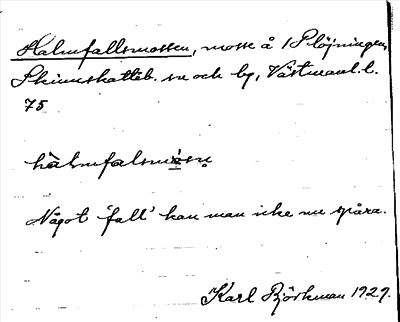 Halmfallsmossen, mosse å 1 Plöjningen,
Skinnskatteb. sn och bg, Västmanl. l.
75
hàlmfalsmå̀sn̥
Något 'fall' kan man icke nu spåra.
Karl Björkman 1929.